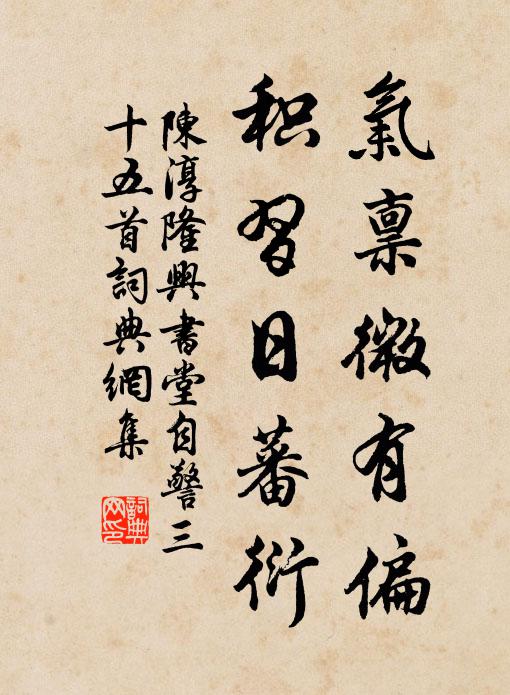 氣稟微有偏
积習日蕃衍
陳淳隆興書堂自警三
十五首詞典網集
詞典
网印